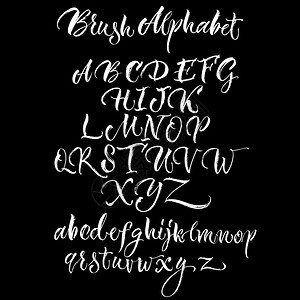 Brush Alphabet
A B C D E F G
H I J K
L M N O P
Q R S T U V W
X Y Z
a b c d e f g h i j k l m n o p
q r s t u v w x y z